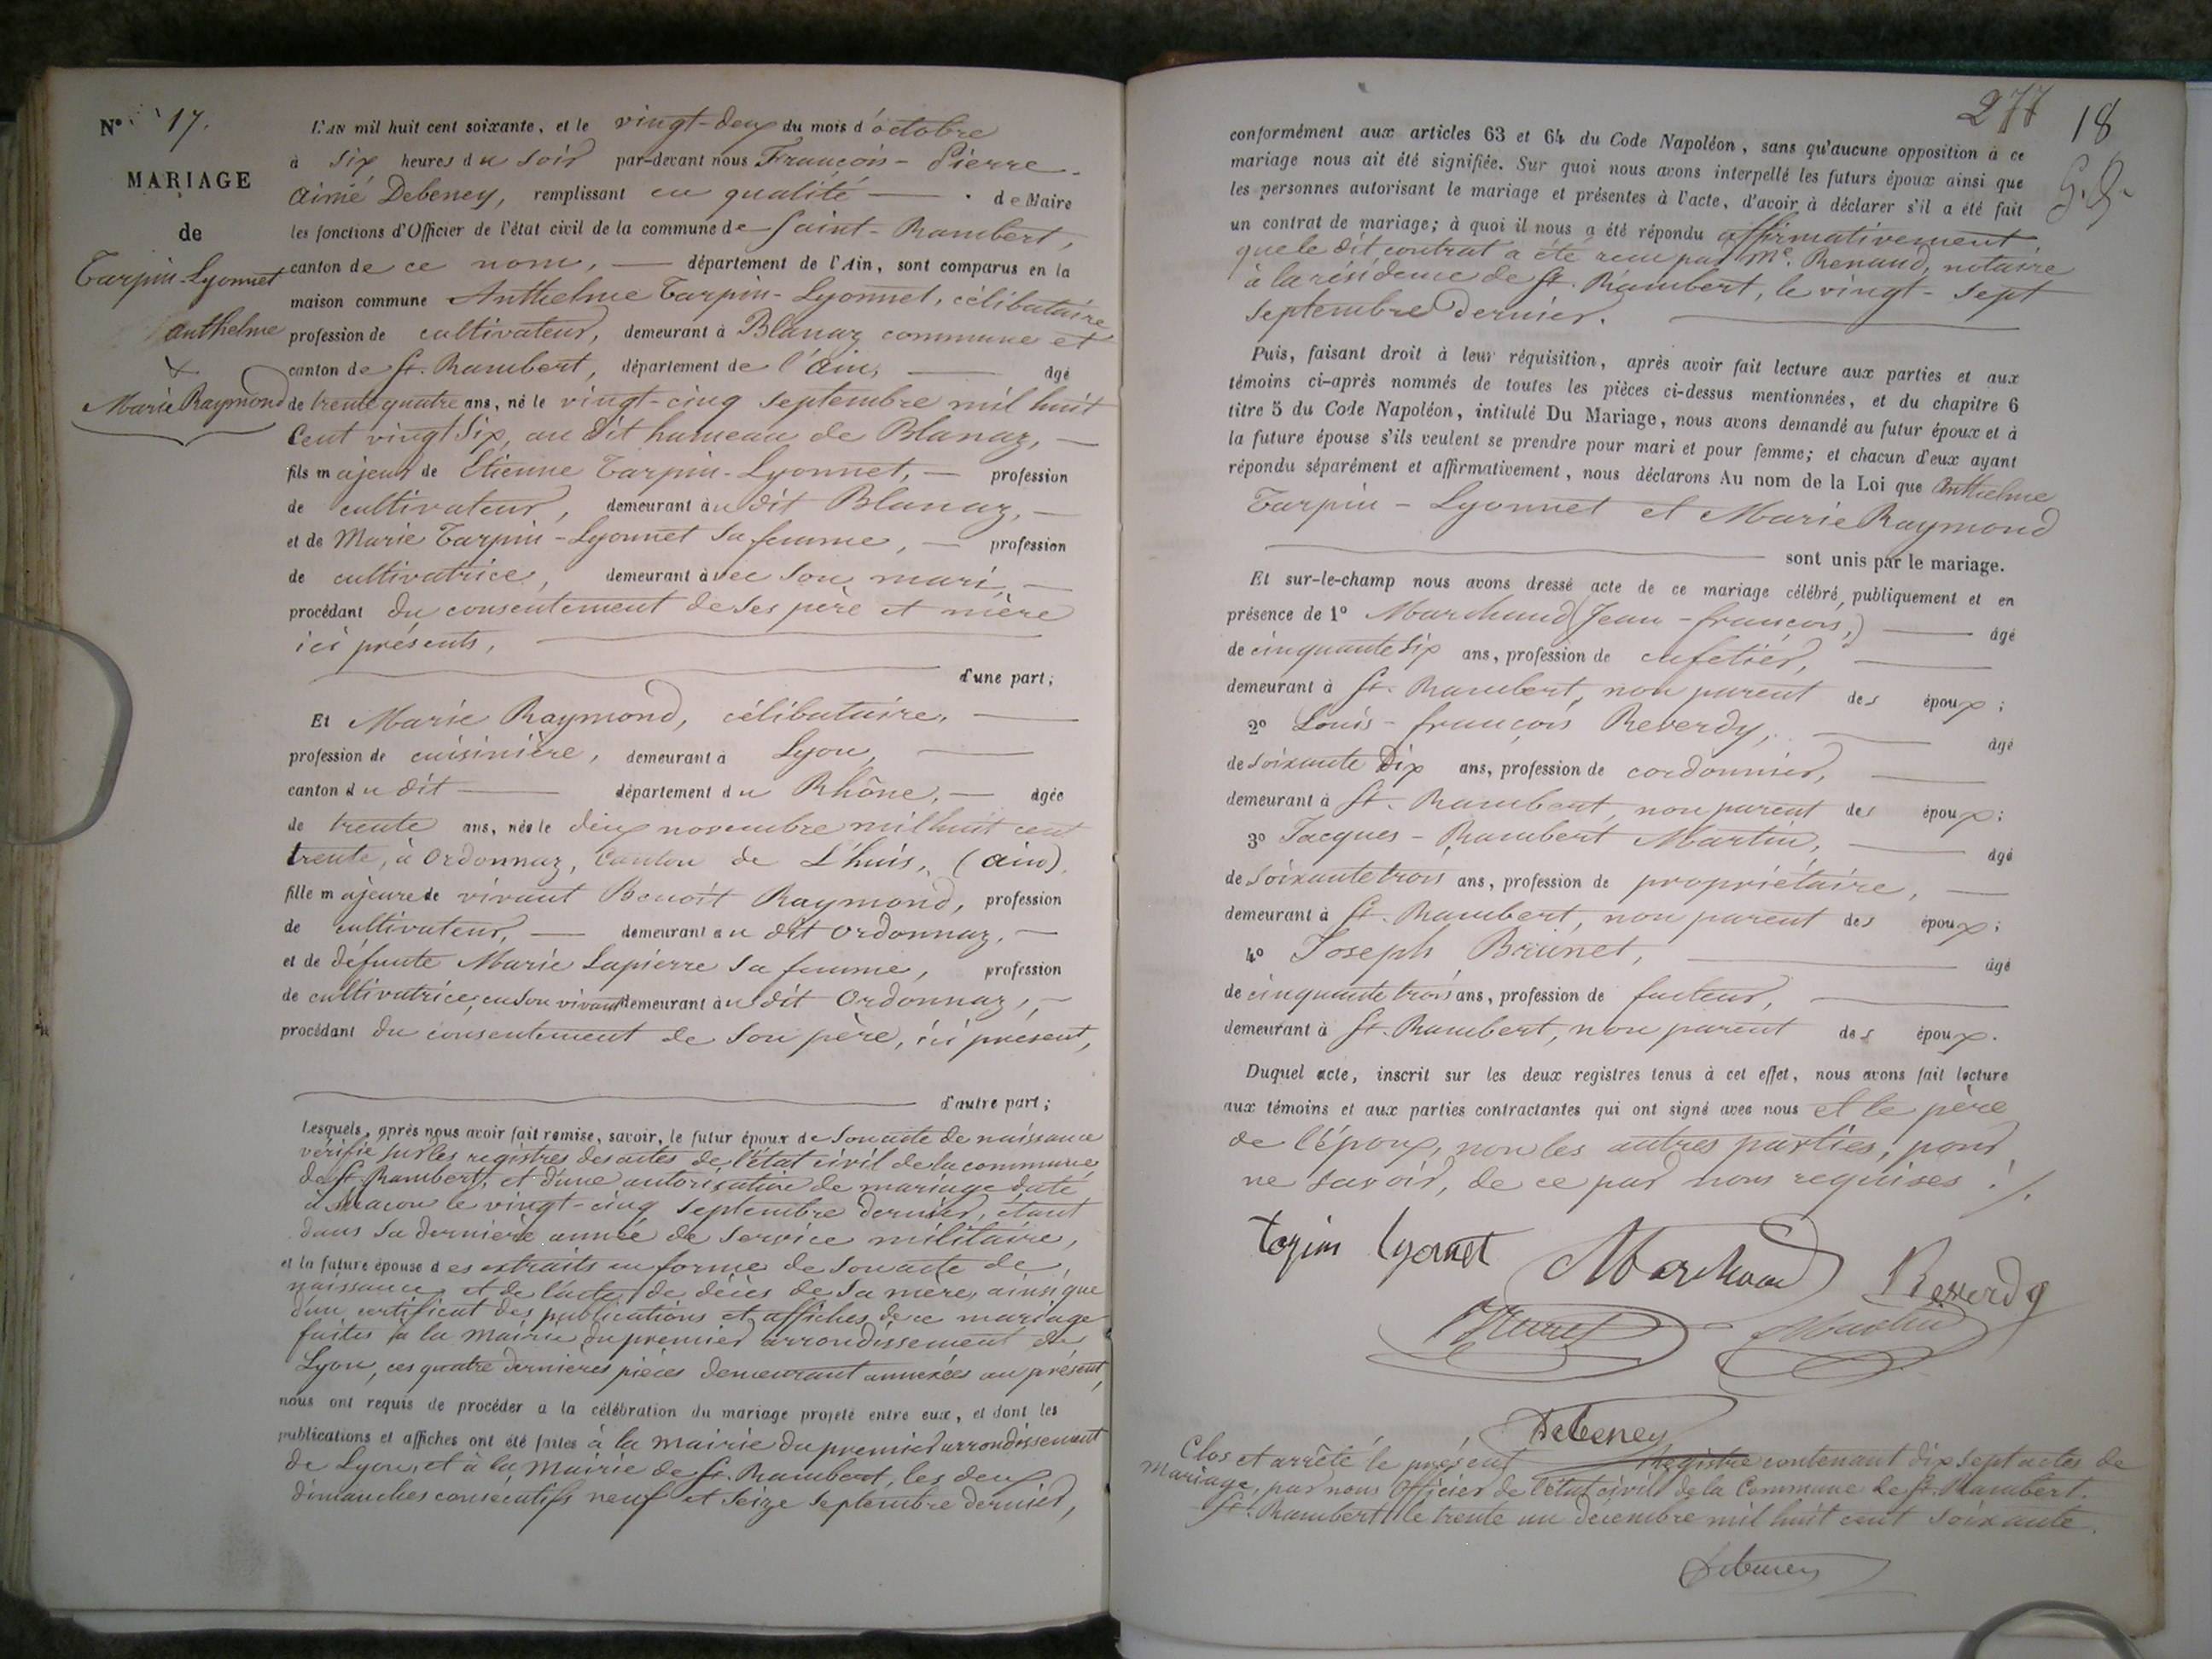 N° 17.
MARIAGE
de
Tarpin-Lyonnet
Anthelme
&
Marie Raymond
L'AN mil huit cent soixante, et le vingt-deux du mois d'octobre
à six heures du soir par-devant nous François-Pierre-
Aimé Debeney, remplissant en qualité de Maire
les fonctions d'Officier de l'état civil de la commune de Saint-Rambert,
canton de ce nom, département de l'Ain, sont comparus en la
maison commune Anthelme Tarpin-Lyonnet, célibataire
profession de cultivateur, demeurant à Blanaz commune et
canton de St. Rambert, département de l'Ain, âgé
de trente quatre ans, né le vingt-cinq septembre mil huit
cent vingt six, au dit hameau de Blanaz,
fils majeur de Etienne Tarpin-Lyonnet, profession
de cultivateur, demeurant au dit Blanaz,
et de Marie Tarpin-Lyonnet sa femme, profession
de cultivatrice, demeurant avec son mari,
procédant du consentement de ses père et mère
ici présents,
d'une part;
Et Marie Raymond, célibataire,
profession de cuisinière, demeurant à Lyon,
canton du dit département du Rhône, âgée
de trente ans, née le deux novembre mil huit cent
trente, à Ordonnaz, Canton de L'huis, (Ain),
fille majeure de vivant Benoît Raymond, profession
de cultivateur, demeurant au dit Ordonnaz,
et de défunte Marie Lapierre sa femme, profession
de cultivatrice, en son vivant demeurant au dit Ordonnaz,
procédant du consentement de son père, ici présent,
d'autre part;
Lesquels, après nous avoir fait remise, savoir, le futur époux de son acte de naissance
vérifié sur les registres des actes de l'état civil de la commune
de St. Rambert, et d'une autorisation de mariage datée
à Macon le vingt-cinq septembre dernier, étant
dans sa dernière année de service militaire,
et la future épouse des extraits en forme de son acte de
naissance, et de l'acte de décès de sa mère, ainsi que
d'un certificat des publications et affiches de ce mariage
faites à la Mairie du premier arrondissement de
Lyon, ces quatre dernières pièces demeurant annexées au présent,
nous ont requis de procéder à la célébration du mariage projeté entre eux, et dont les
publications et affiches ont été faites à la Mairie du premier arrondissement
de Lyon, et à la Mairie de St. Rambert, les deux
dimanches consécutifs neuf et seize septembre dernier,
277 18
conformément aux articles 63 et 64 du Code Napoléon, sans qu'aucune opposition à ce
mariage nous ait été signifiée. Sur quoi nous avons interpellé les futurs époux ainsi que
les personnes autorisant le mariage et présentes à l'acte, d'avoir à déclarer s'il a été fait
un contrat de mariage; à quoi il nous a été répondu affirmativement
que le dit contrat a été reçu par Me. Renaud, notaire
à la résidence de St. Rambert, le vingt-sept
septembre dernier.
Puis, faisant droit à leur réquisition, après avoir fait lecture aux parties et aux
témoins ci-après nommés de toutes les pièces ci-dessus mentionnées, et du chapitre 6
titre 5 du Code Napoléon, intitulé Du Mariage, nous avons demandé au futur époux et à
la future épouse s'ils veulent se prendre pour mari et pour femme; et chacun d'eux ayant
répondu séparément et affirmativement, nous déclarons Au nom de la Loi que Anthelme
Tarpin-Lyonnet et Marie Raymond
sont unis par le mariage.
Et sur-le-champ nous avons dressé acte de ce mariage célébré publiquement et en
présence de 1° Marchand (Jean-François,) âgé
de cinquante six ans, profession de cafetier,
demeurant à St. Rambert, non parent des époux;
2° Louis-François Reverdy, âgé
de soixante dix ans, profession de cordonnier,
demeurant à St. Rambert, non parent des époux;
3° Jacques-Rambert Martin, âgé
de soixante trois ans, profession de propriétaire,
demeurant à St. Rambert, non parent des époux;
4° Joseph Brunet, âgé
de cinquante trois ans, profession de facteur,
demeurant à St. Rambert, non parent des époux.
Duquel acte, inscrit sur les deux registres tenus à cet effet, nous avons fait lecture
aux témoins et aux parties contractantes qui ont signé avec nous et le père
de l'époux, non les autres parties, pour
ne savoir, de ce par nous requises ./.
Marchand Reverdy
Martin
Debeney
Clos et arrêté le présent Registre contenant dix sept actes de
Mariage, par nous Officier de l'état civil de la Commune de St. Rambert.
St. Rambert le trente un décembre mil huit cent soixante.
Debeney